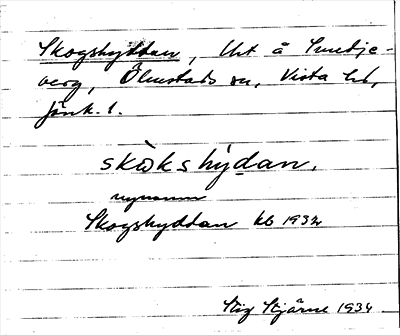 Skogshyddan, Uht å Smedje-
berg, Ölmstads sn, Vista hd,
Jönk. l.
skωkshy̱dan.
nynamn
Skogshyddan kb 1932
Stig Stjärne 1934